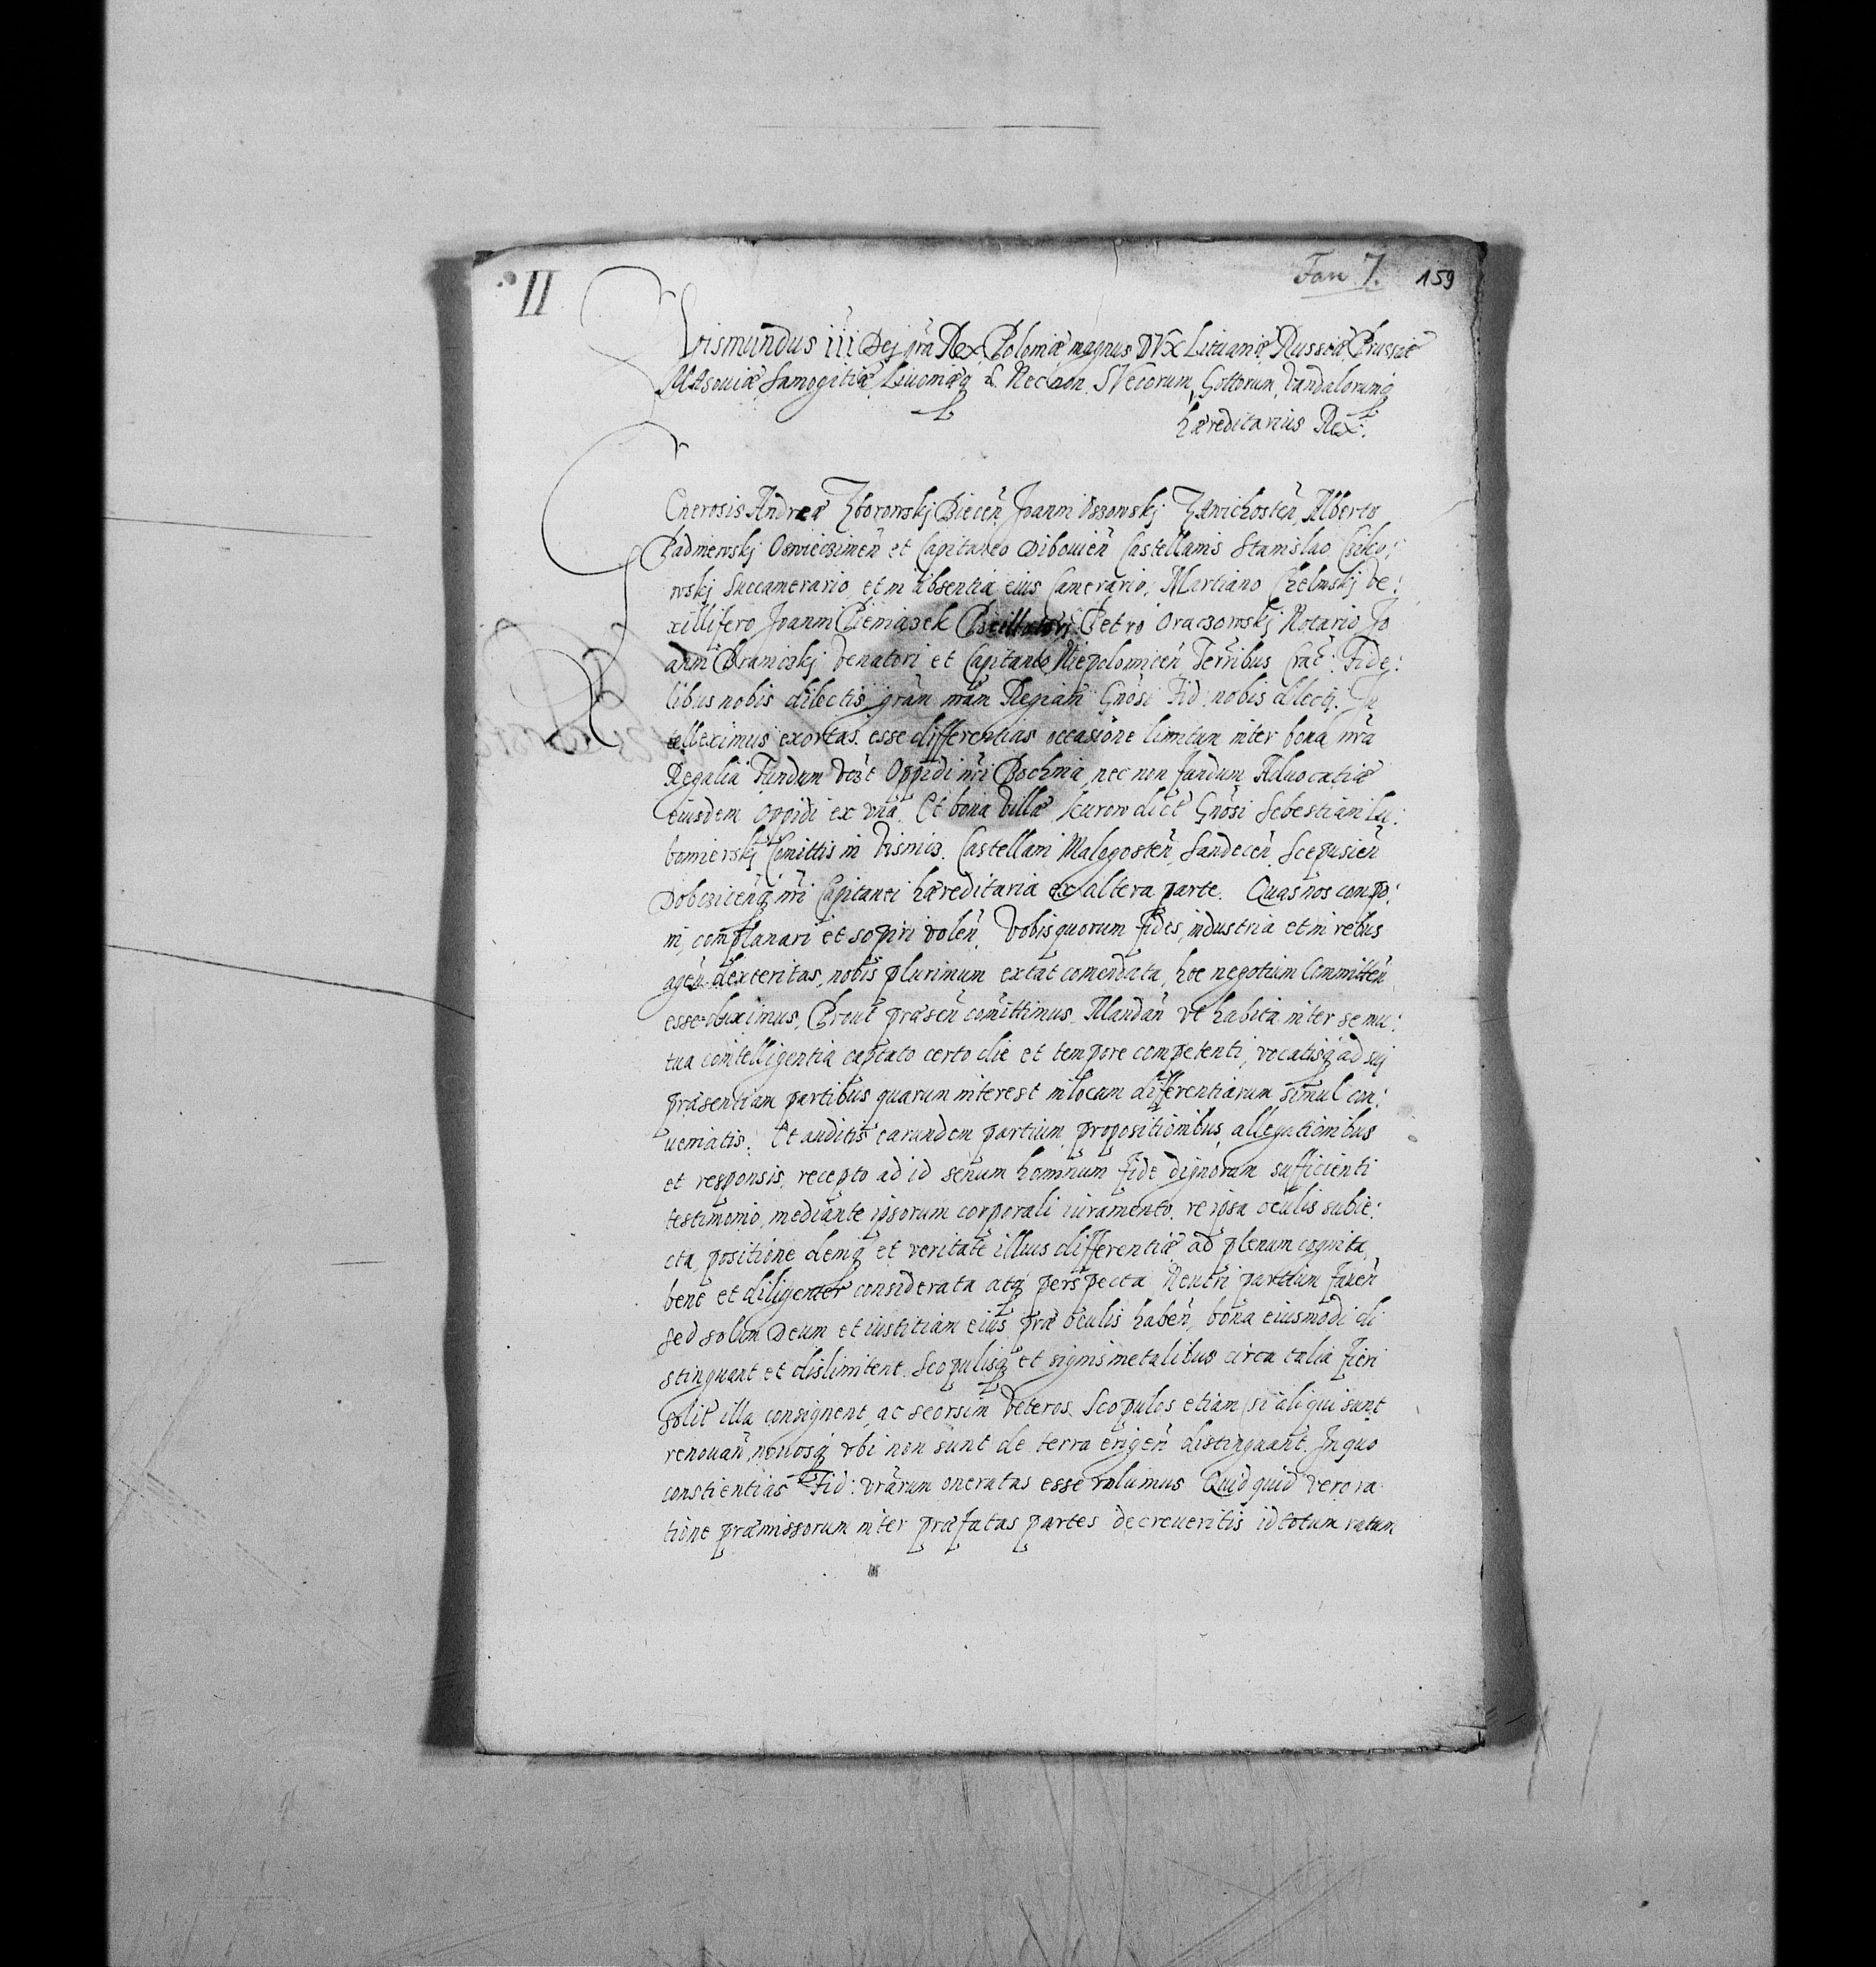 II
Fan 7. 159
Sigismundus iii Dej gra Rex Poloniæ magnus DVX Lituaniæ Russiæ Prussiæ
MAsouiæ Samogitiæ Liuoniæq &. Nec non SVecorum Gottorum Vandalorumq
hæreditarius Rex.
Generosis Andreæ Zborowskj Biecen̄ Joanni Ossowskj ZAwichosten̄, Alberto
Padniewskj Oswieczimen̄ et Capitaneo Dibouien̄ Castellanis Stanislao Cziko:
wskj Succamerario, et in absentia eius Camerario, Martiano Chelmskj Ve:
xillifero Joanni Pieniazek Petro Oraczowskj Notario Jo
anni Braniczkj Venatori et Capitaneo Niepolomicen̄ Terribus Crac: Fide:
libus nobis dilectis grām nrām Regiam Gnōsi Fid: nobis dilecti. In
telleximus exortas esse differentias occasione limitum inter bona nrā
Regalia Fundum Oppidi nrī Bochnia nec non fundum Aduocatiæ
eiusdem Oppidi ex vna. Et bona Villæ Kurow dict Gnōsi Sebestiani Lu:
bomierskj Comittis in Visnicz. Castellani Malogosten̄, Sandecen̄, Scepusien̄
Dobczicenq nrī Capitanei hæreditaria ex altera parte. Quas nos compo:
ni, complanari et sopiri volen̄. Vobis quorum fides, industria et in rebus
agen̄ dexteritas, nobis plurimum extat comendata, hoc negotium Committen̄
esse duximus, Prout præsen̄ comittimus. Mandan̄ vt habita inter se mu:
tua contelligentia captato certo die et tempore competenti, vocatisq ad sui
præsentiam partibus quarum interest in locum differentiarum simul con:
ueniatis. Et auditis earundem partium propositionibus allegationibus
et responsis, recepto ad id senum hominum fide dignorum sufficienti
testimonio, mediante ipsorum corporali iuramento. re ipsa oculis subie:
cta, positione deniq et veritate illius differentiæ ad plenum cognita,
bene et diligenter considerata atq perspecta Neutri partium fauen̄
sed solum Deum et iustitiam eius præ oculis haben̄, bona eiusmodi di
stinguant et dislimitent. Scopulisq et signis metalibus circa talia fieri
solit illa consignent, ac seorsim Veteros Scopulos etiam si aliqui sunt
renouan̄, nouosq vbi non sunt de terra erigen̄ distinguant. In quo
constientias Fid: vrārum oneratas esse volumus Quid quid vero ra
tione præmissorum inter præfatas partes decreueritis id totum ratum